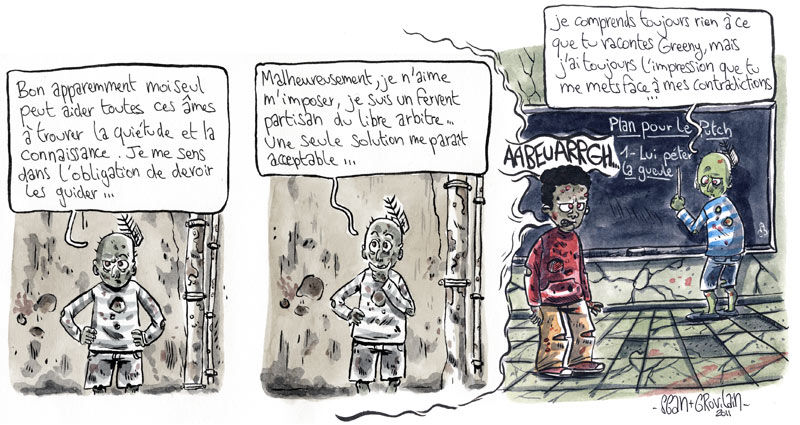 Bon apparemment moi seul
peut aider toutes ces âmes
à trouver la quiétude et la
connaissance. Je me sens
dans l'obligation de devoir
les guider...
Malheureusement, je n'aime
m'imposer, je suis un fervent
partisan du libre arbitre...
Une seule solution me parait
acceptable...
je comprends toujours rien à ce
que tu racontes Greeny, mais
j'ai toujours l'impression que tu
me mets face à mes contradictions
...
AABEUARRGH...
Plan pour le Pitch
1- Lui péter
la gueule
2011